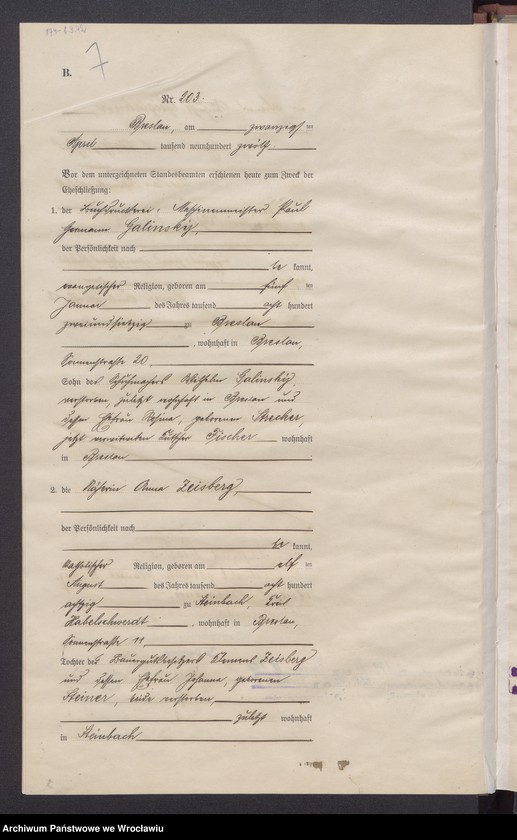 7
B.
Nr. 203.
Breslau, am zwanzigs ten
April tausend neunhundert zwölf
Vor dem unterzeichneten Standesbeamten erschienen heute zum Zweck der
Eheschließung:
1. der Buchdruckerei-Maschinenmeister Paul
Hermann Galinsky,
der Persönlichkeit nach
be kannt,
evangelischer Religion, geboren am fünf ten
Januar des Jahres tausend acht hundert
zweiundsiebzig zu Breslau
, wohnhaft in Breslau,
Sonnenstraße 20,
Sohn des Schuhmachers Wilhelm Galinsky,
verstorben, zuletzt wohnhaft in Breslau und
dessen Ehefrau Rosina, geborenen Strecker,
jetzt verwitweten Kutscher Fischer wohnhaft
in Breslau
2. die Näherin Anna Zeisberg,
der Persönlichkeit nach
be kannt,
katholischer Religion, geboren am elf ten
August des Jahres tausend acht hundert
achtzig zu Steinbach, Kreis
Habelschwerdt, wohnhaft in Breslau,
Sonnenstraße 11,
Tochter des Bauergutsbesitzers Clemens Zeisberg
und dessen Ehefrau Johanna, geborenen
Steiner, beide verstorben,
zuletzt wohnhaft
in Steinbach
Archiwum Państwowe we Wrocławiu